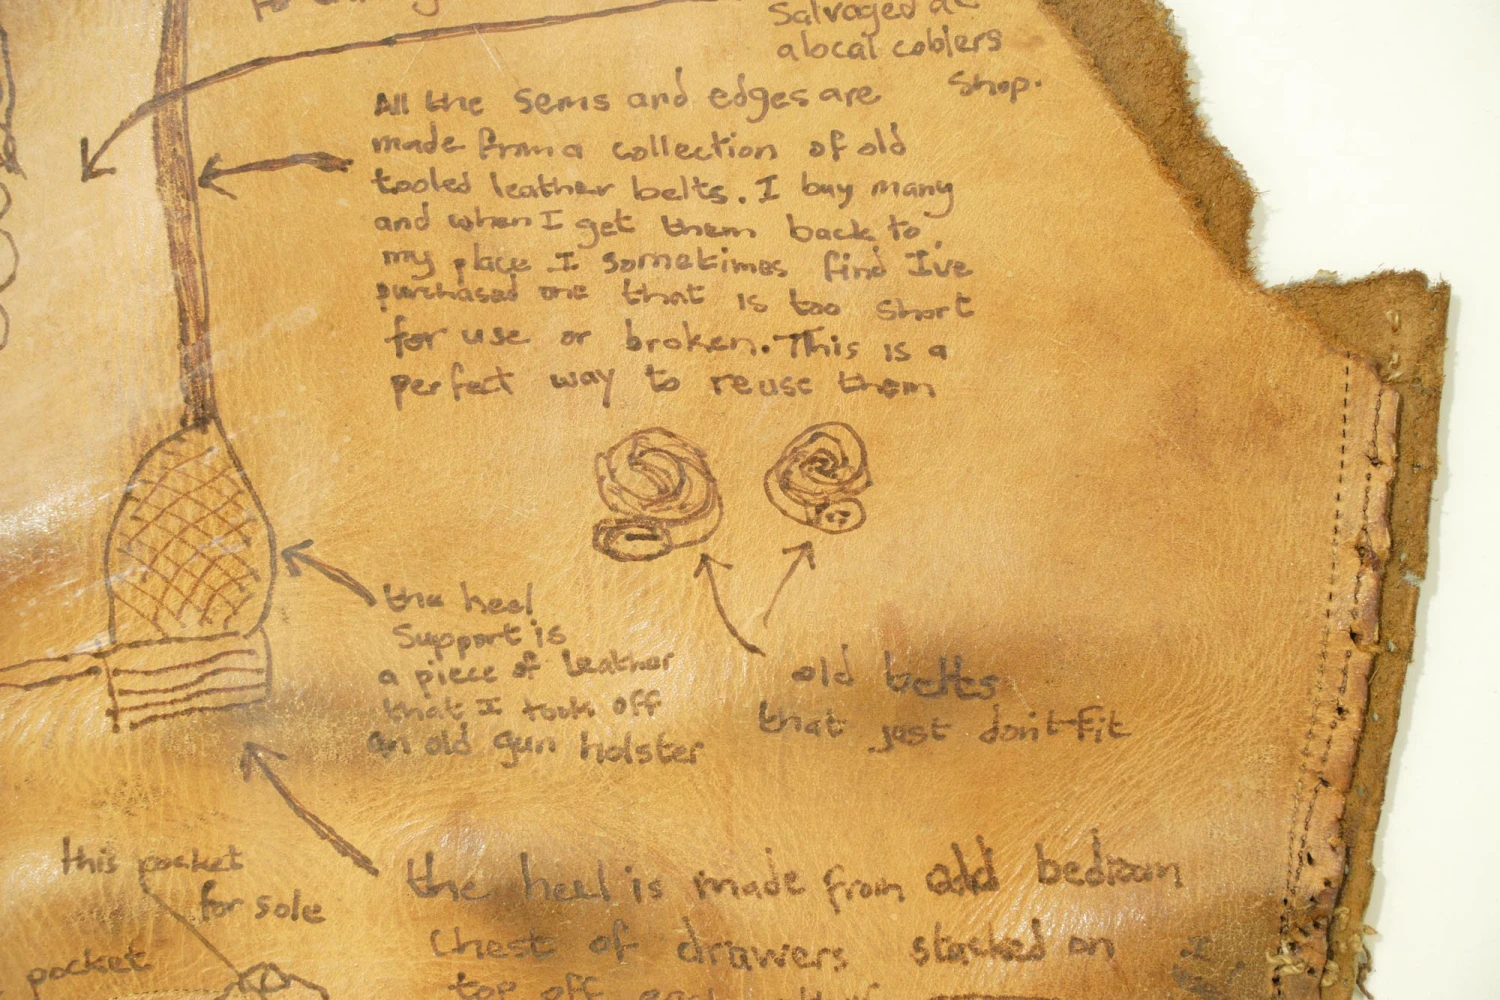 Salvaged at
a local coblers
Shop.
All the Sems and edges are
made from a collection of old
tooled leather belts. I buy many
and when I get them back to
my place I sometimes find I've
purchased one that is too short
for use or broken. This is a
perfect way to reuse them
the heel
Support is
a piece of leather
that I took off
an old gun holster
old belts
that just don't fit
this pocket
for sole
pocket
the heel is made from old bedroom
Chest of drawers stacked on
top off each